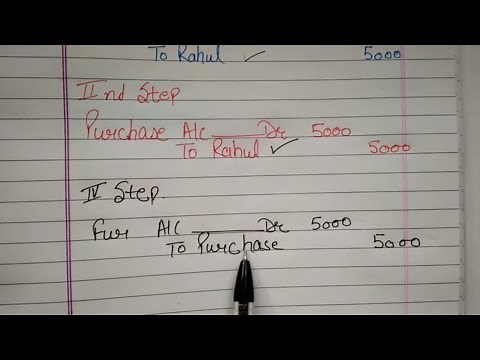 To Rahul ✓ 5000
II nd Step
Purchase A/C ______ Dr 5000
To Rahul ✓ 5000
IV Step.
Fur A/C ______ Dr 5000
To Purchase 5000